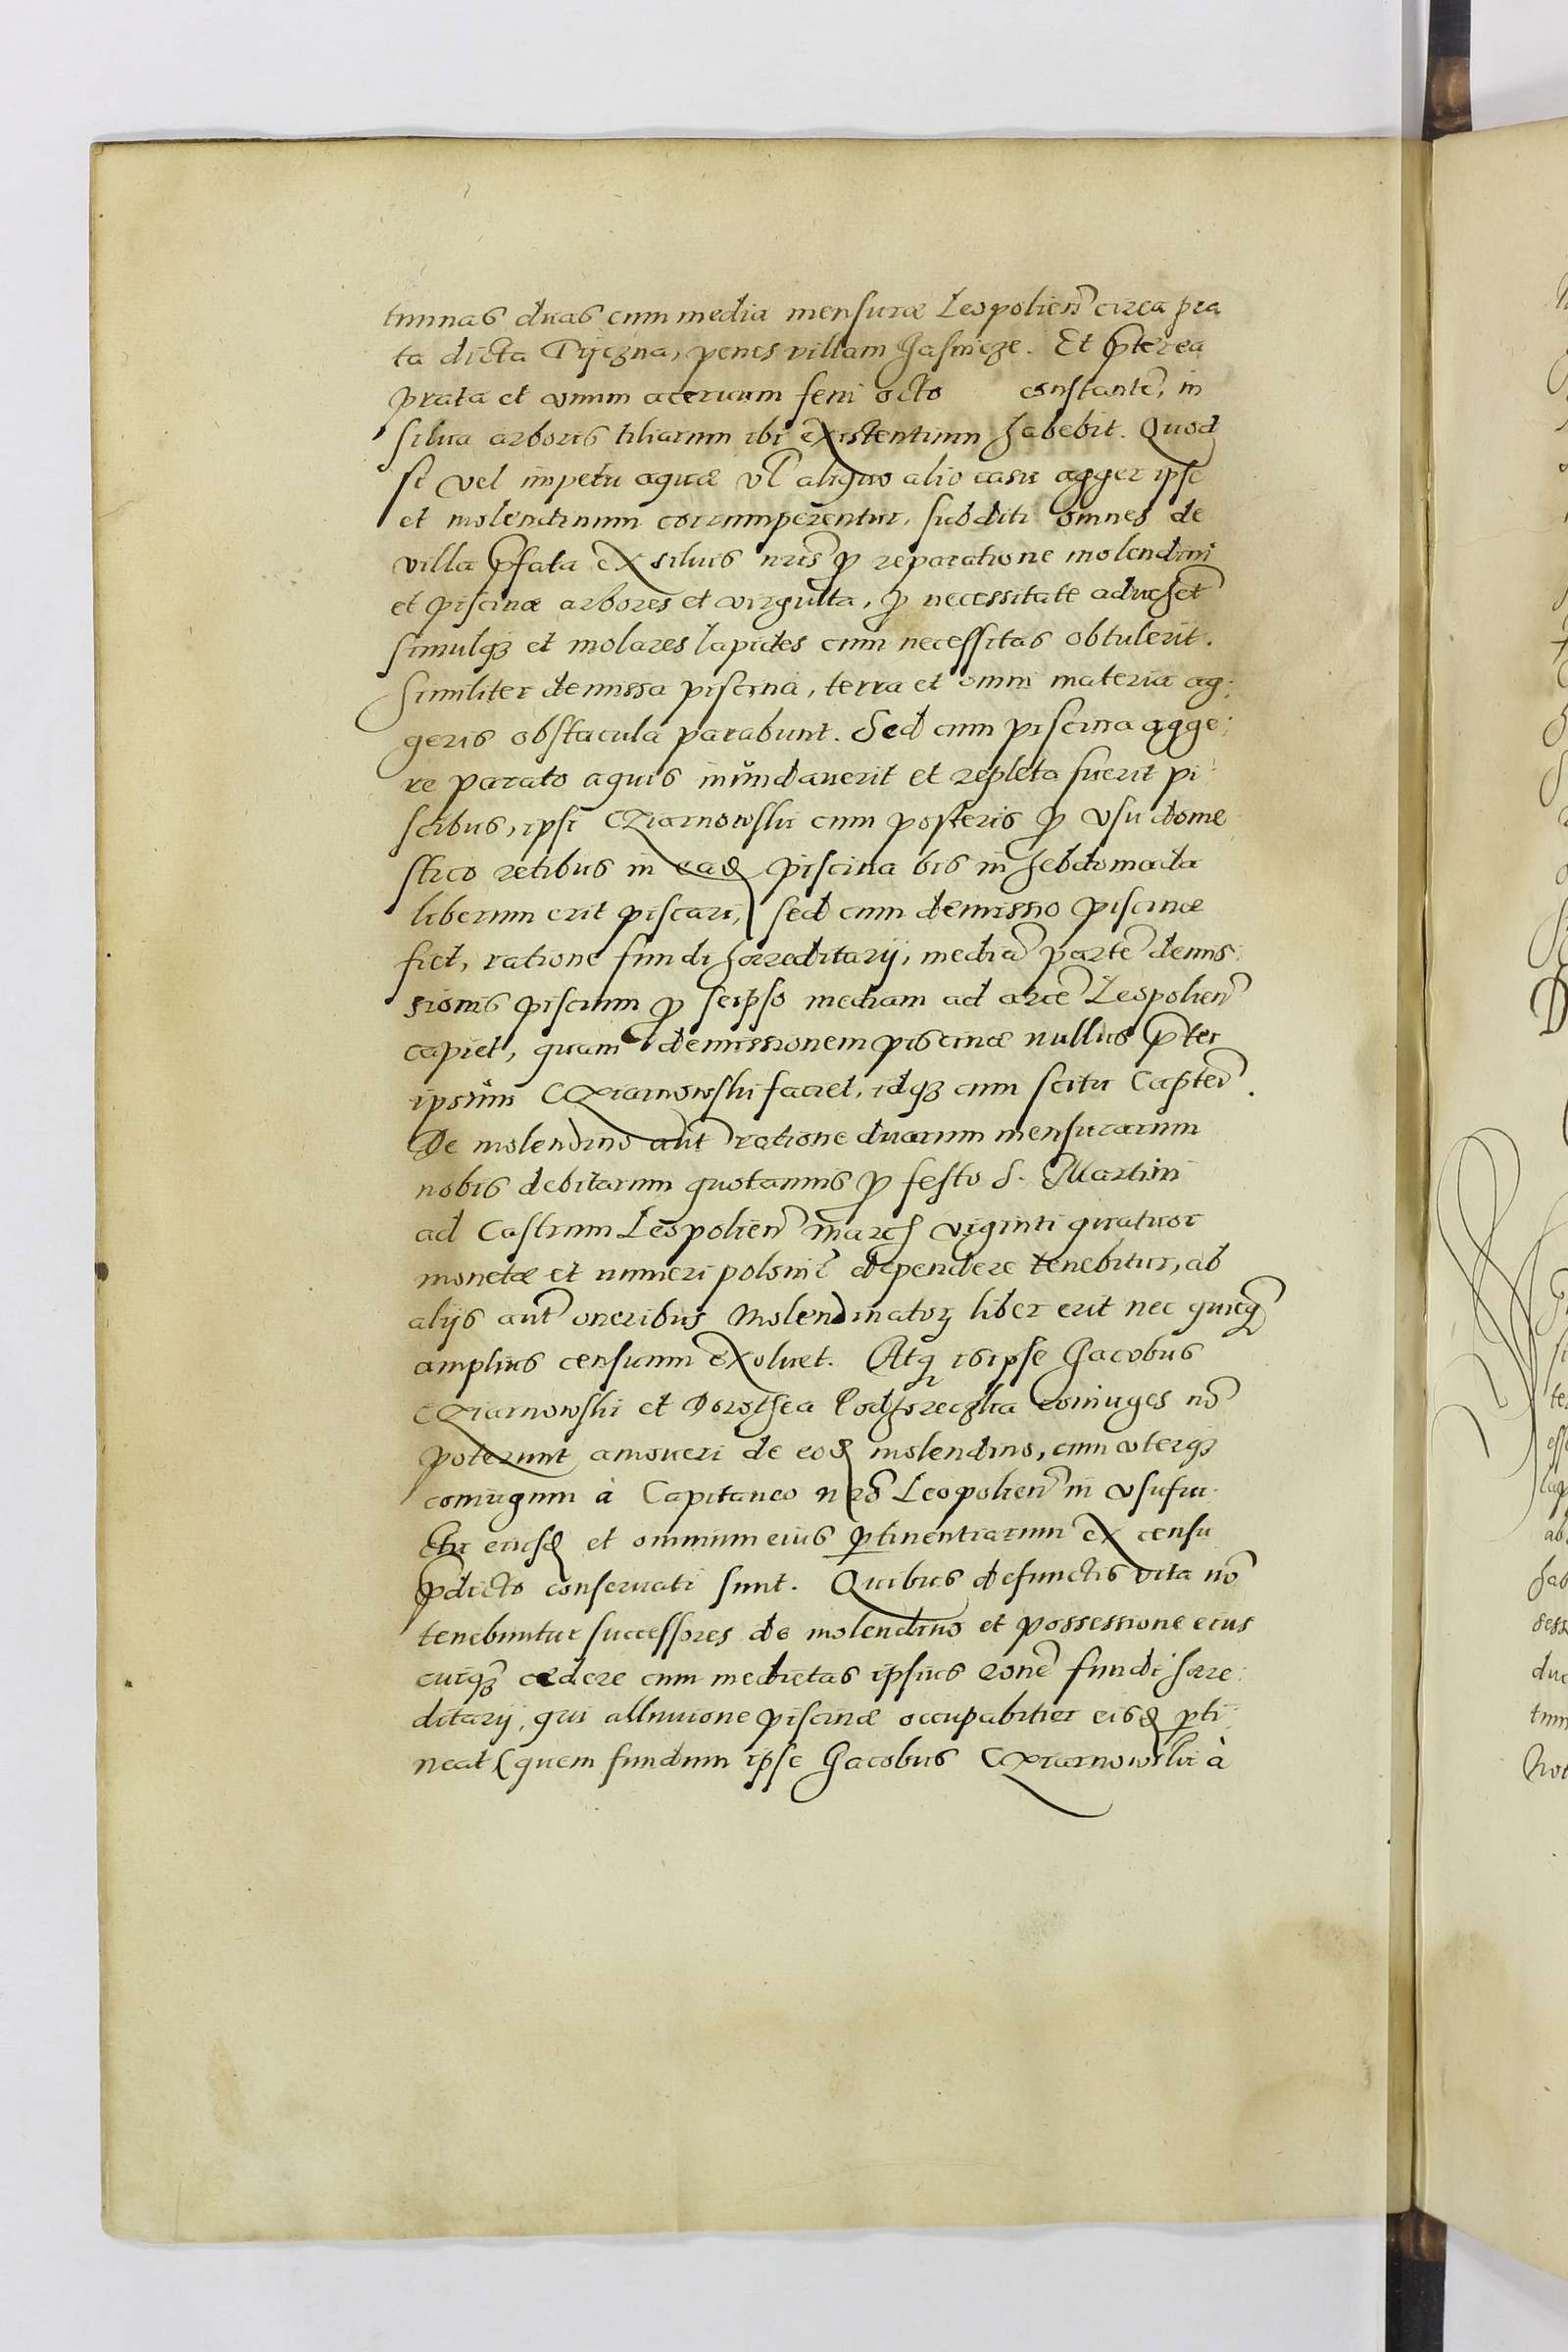 tumnas duas cum media mensuræ Leopolien̄ circa pra
ta dicta Tijczna, penes villam Jasnicze. Et p̄terea
prata et vnum aceruum feni octo constantē, in
silua arboris tiliarum ibi existentium habebit. Quod
si vel impetu aquæ vl̄ aliquo alio casu agger ipse
et molendinum corrumperentur, subditi omnes de
villa p̄fata ex siluis nr̄is p̱ reparatione molendini
et piscinæ arbores et virgulta, p̱ necessitate aduehet̄
simulqꝫ et molares lapides cum necessitas obtulerit.
Similiter demissa piscina, terra et omni materia ag:
geris obstacula parabunt. Sed cum piscina agge:
re parato aquis inundauerit et repleta fuerit pi:
scibus, ipsi Cziarnowski cum posteris p̱ vsu dome
stico retibus in eadꝫ piscina bis in hebdomada
liberum erit piscari, sed cum demissio piscinæ
fiet, ratione fundi hæreditarij, mediā partē demis:
sionis piscium p̱ seipso mediam ad arcē Leopolien̄
capiet, quam demissionem piscinæ nullus p̄ter
ipsum Cziarnowski faciet, idqꝫ cum scitu Capitēi.
De molendino aūt ratione duarum mensurarum
nobis debitarum quotannis p̱ festo S. Martini
ad Castrum Leopolien̄ march viginti quatuor
monetæ et numeri polonić dependere tenebitur, ab
alijs aūt oneribus Molendinatorꝫ liber erit nec quicq̄
amplius censuum exoluet. Atqꝫ is ipse Jacobus
Cziarnowski et Dorothea Podhoreczka coniuges nō
poterunt amoueri de eodꝫ molendino, cum vterqꝫ
coniugum à Capitaneo nr̄o Leopolien̄ in vsufru:
ctu eiusdꝫ et omnium eius ꝑtinentiarum ex censu
p̄dicto conseruati sunt. Quibus defunctis vita nō
tenebuntur successores de molendino et possessione eius
cuiqꝫ cedere cum medietas ipsius r̄onē fundi hære:
ditarij, qui alluuione piscinæ occupabitur eisdꝫ ꝑti:
neat (quem fundum ipse Jacobus Cziarnowski à